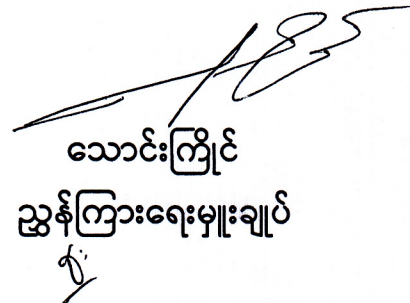 သောင်းကြိုင်
ညွှန်ကြားရေးမှူးချုပ်